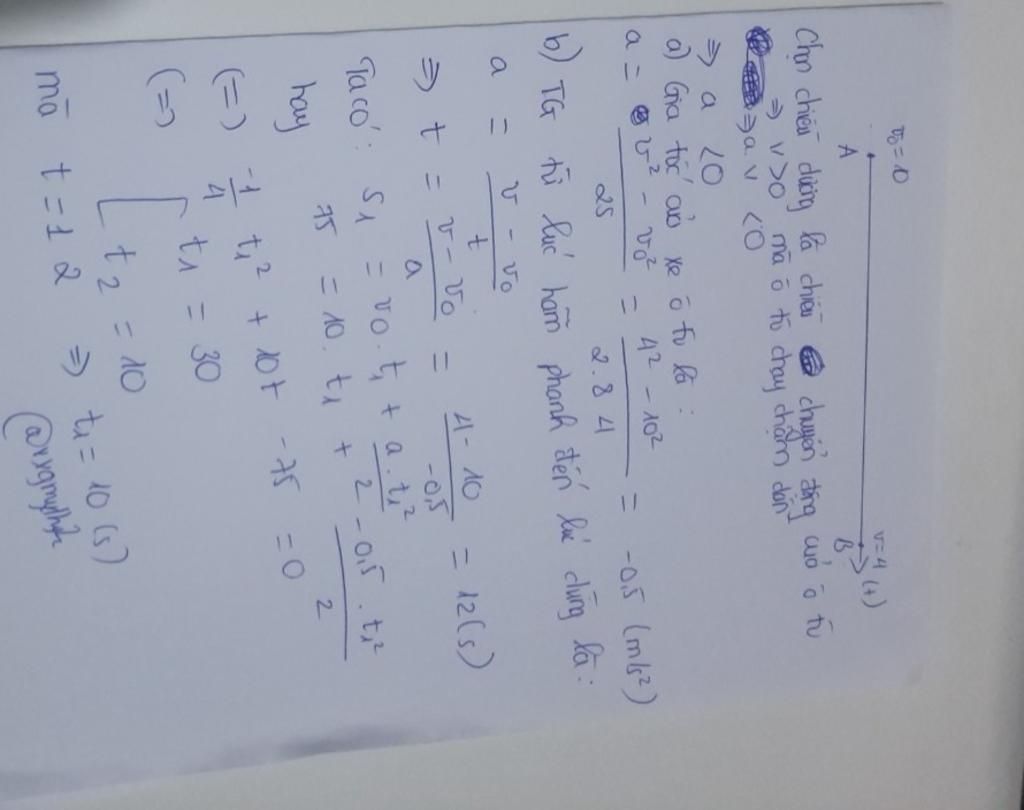 v₀ = 10
v = 4
A
B
(+)
Chọn chiều dương là chiều chuyển động của ô tô
⇒ v > 0 mà ô tô chạy chậm dần
⇒ a.v < 0
⇒ a < 0
a) Gia tốc của xe ô tô là:
a = (v² - v₀²) / 2S = (4² - 10²) / (2.84) = -0,5 (m/s²)
b) TG từ lúc hãm phanh đến lúc dừng là:
a = (v - v₀) / t
⇒ t = (v - v₀) / a = (4 - 10) / -0,5 = 12 (s)
Ta có: S₁ = v₀.t₁ + (a.t₁²) / 2
hay 75 = 10.t₁ + (-0,5.t₁²) / 2
(=) -1/4 t₁² + 10t - 75 = 0
(=) [ t₁ = 30
t₂ = 10
mà t = 12 ⇒ t₁ = 10 (s)